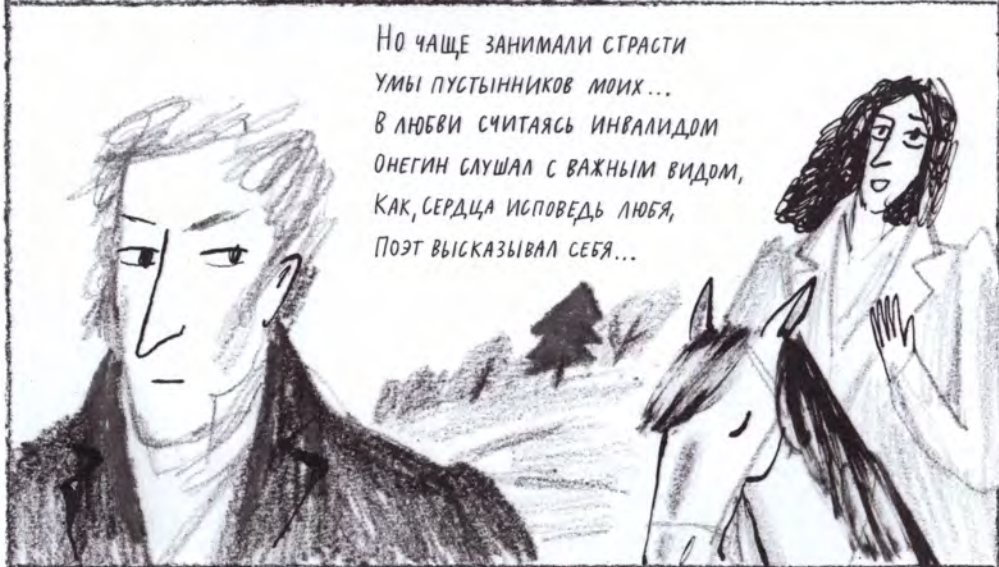 Но чаще занимали страсти
умы пустынников моих...
В любви считаясь инвалидом
Онегин слушал с важным видом,
Как, сердца исповедь любя,
Поэт высказывал себя...